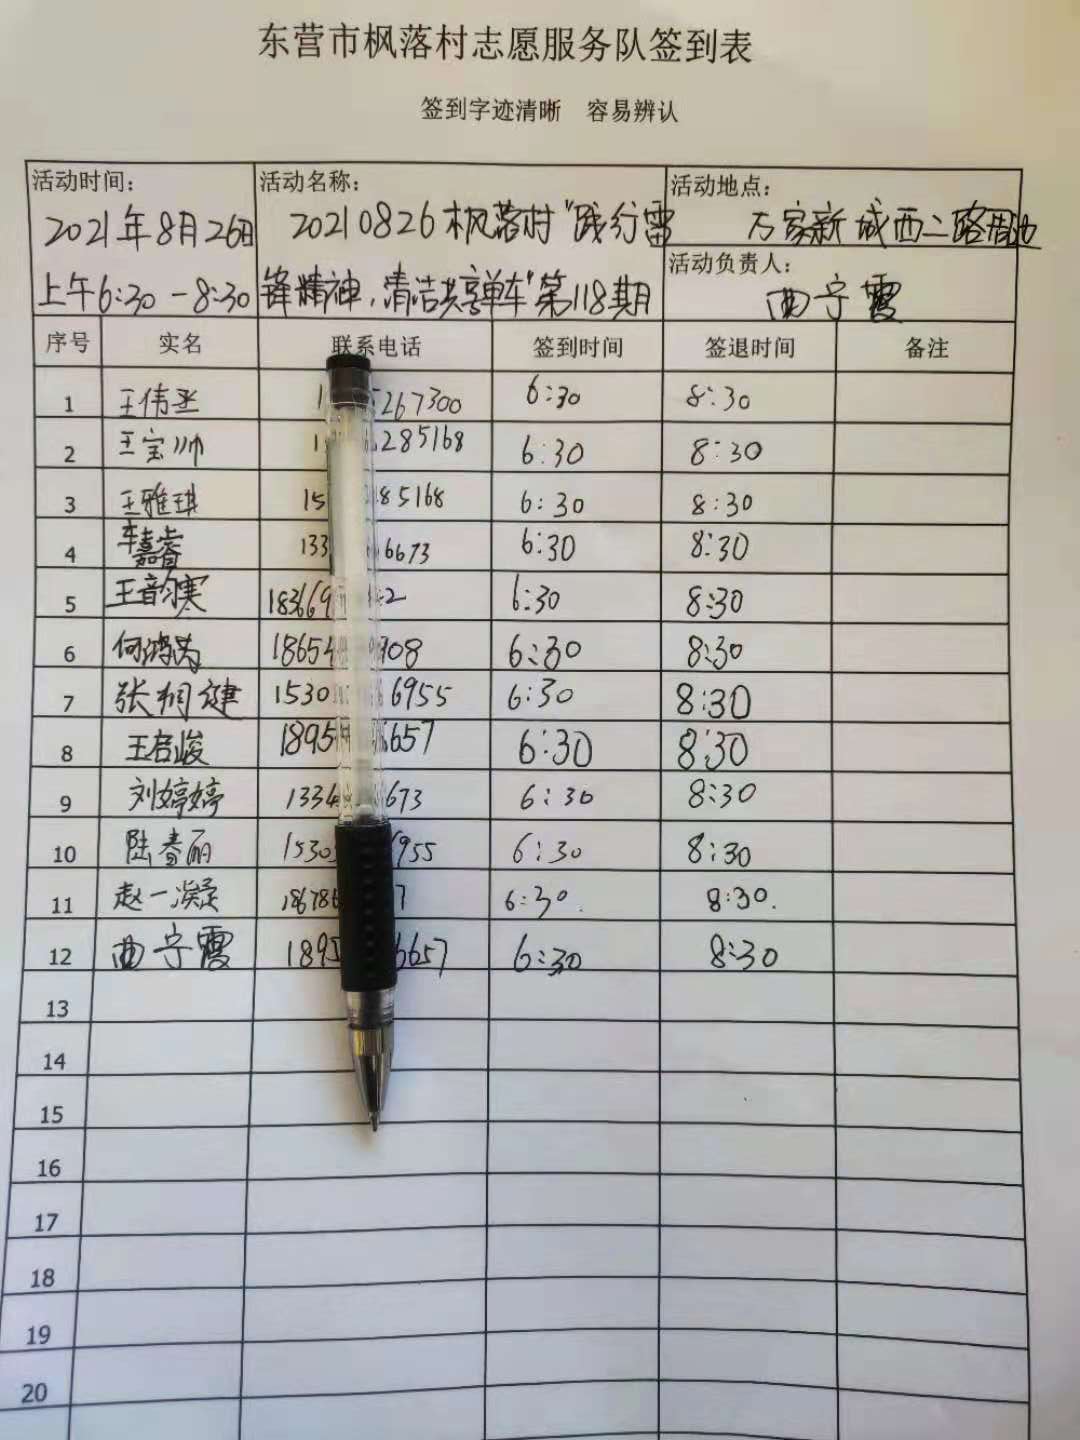 东营市枫落村志愿服务队签到表
签到字迹清晰 容易辨认
活动时间: 活动名称: 活动地点:
2021年8月26日 20210826枫落村“践行雷 万家新城西二路周边
活动负责人:
上午6:30-8:30 锋精神,清洁共享单车”第118期 曲宁霞
序号 实名 联系电话 签到时间 签退时间 备注
1 王伟丞 1 267300 6:30 8:30
2 王宝帅 1 285168 6:30 8:30
3 王雅琪 15 85168 6:30 8:30
4 车嘉睿 133 6673 6:30 8:30
5 王韵寒 183669 2 6:30 8:30
6 何鸿 1865 308 6:30 8:30
7 张桐健 1530 6955 6:30 8:30
8 王启峻 1895 657 6:30 8:30
9 刘婷婷 1334 673 6:30 8:30
10 陆春丽 1530 955 6:30 8:30
11 赵一凝 18678 7 6:30. 8:30.
12 曲宁霞 1895 6657 6:30 8:30
13
14
15
16
17
18
19
20